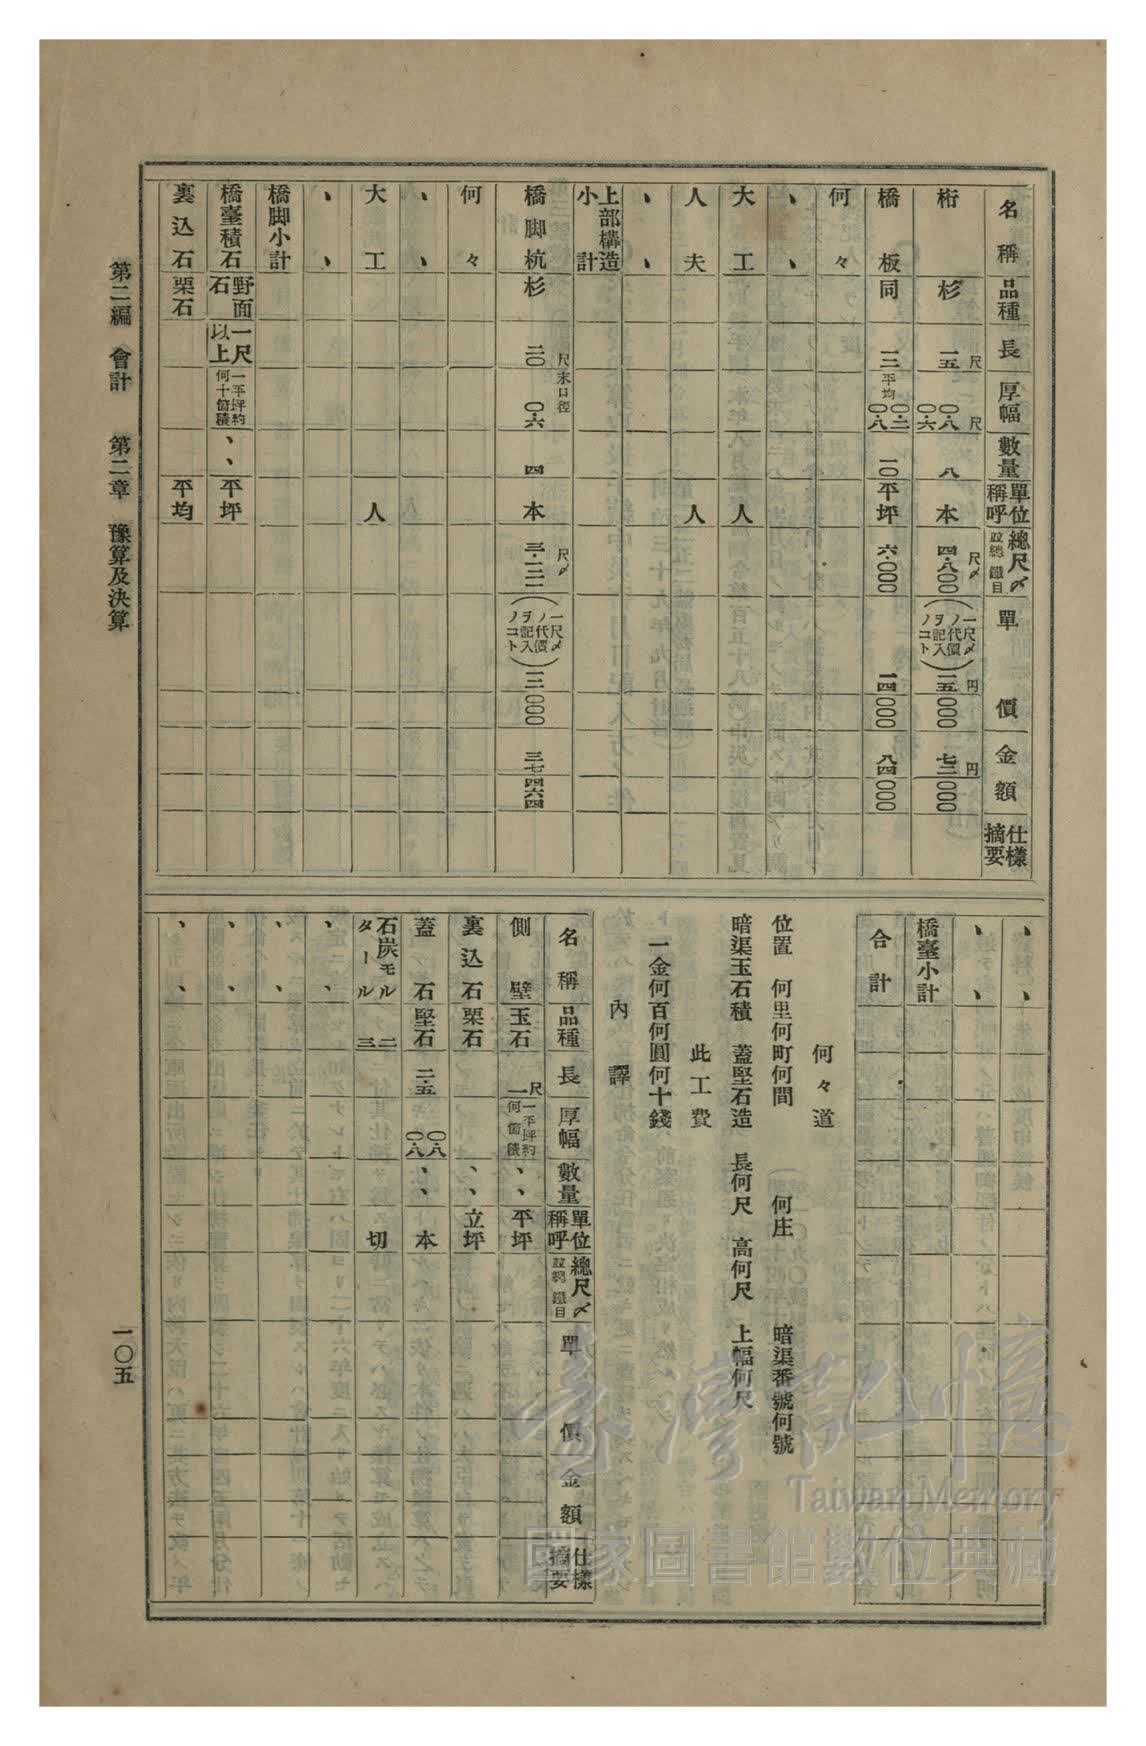 名稱 品種 長 厚幅 數量 單位稱呼 總尺〆竝總鐵目 單價 金額 仕樣摘要
桁 杉 一五尺 〇・八尺 〇・六 八 本 四・八〇〇尺〆 (一尺〆ノ代價ヲ記入ノコト) 一五円〇〇〇 七二円〇〇〇
橋板 同 三 平均 〇・二 〇・八 一〇 平坪 六・〇〇〇 一四〇〇〇 八四〇〇〇
何々
、、
大工 人
人夫 人
、、
上部構造小計
橋脚杭 杉 二〇尺 末口徑 〇・六 四 本 (一尺〆ノ代價ヲ記入ノコト) 〇〇〇
何々
、、
大工 人
、、
橋脚小計
橋臺積石 野面石 一尺以上 一平坪約何十箇積 、、 平坪
裏込石 栗石 平均
、、
、、
橋臺小計
合計
何々道
位置 何里何町何間 何庄 暗渠番號何號
暗渠玉石積 蓋堅石造 長何尺 高何尺 上幅何尺
此工費
一金何百何圓何十錢
內譯
名稱 品種 長 厚幅 數量 單位稱呼 總尺〆竝總鐵目 單價 金額 仕樣摘要
側壁 玉石 一尺 一平坪約何箇積 、、 平坪
裏込石 栗石 、、 立坪
蓋石 堅石 二・五 〇・八 〇・八 、、 本
石炭タール モル 二三 切
、、
、、
、、
、、
第二編 會計 第二章 豫算及決算 一〇五
臺灣記憶
Taiwan Memory
國家圖書館數位典藏